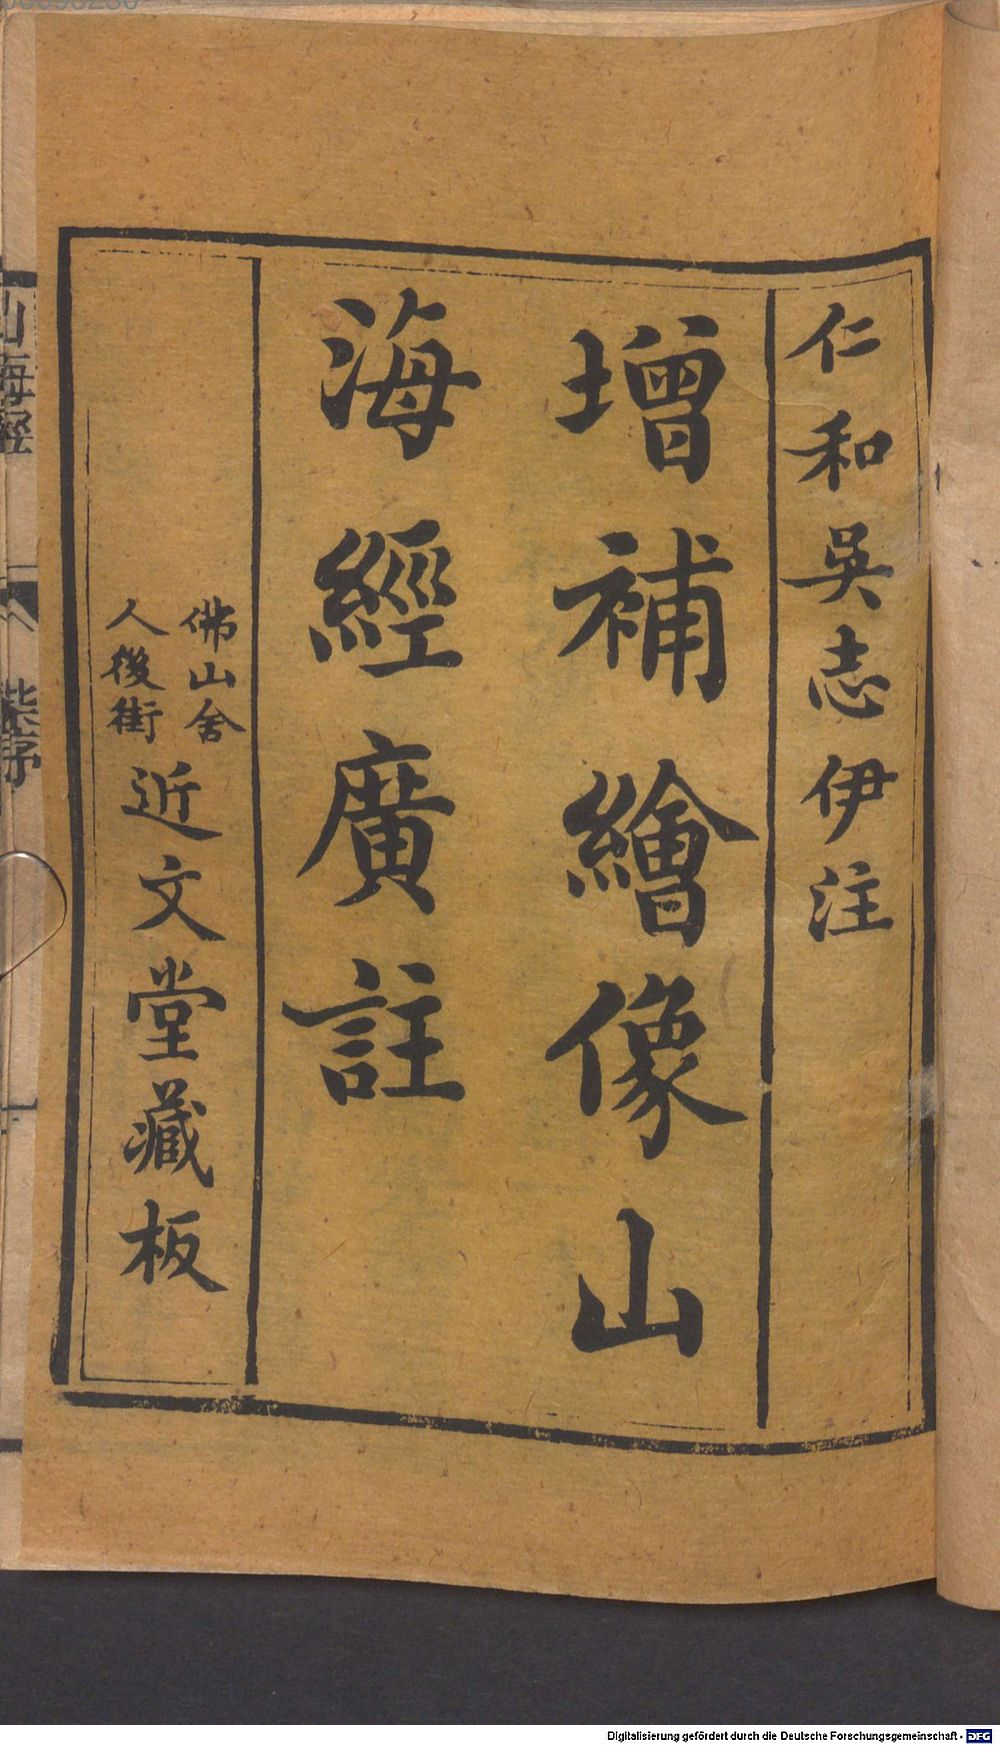 仁和吳志伊注
增補繪像山
海經廣註
佛山舍
人後街
近文堂藏板
山海經
柴序
Digitalisierung gefördert durch die Deutsche Forschungsgemeinschaft - DFG